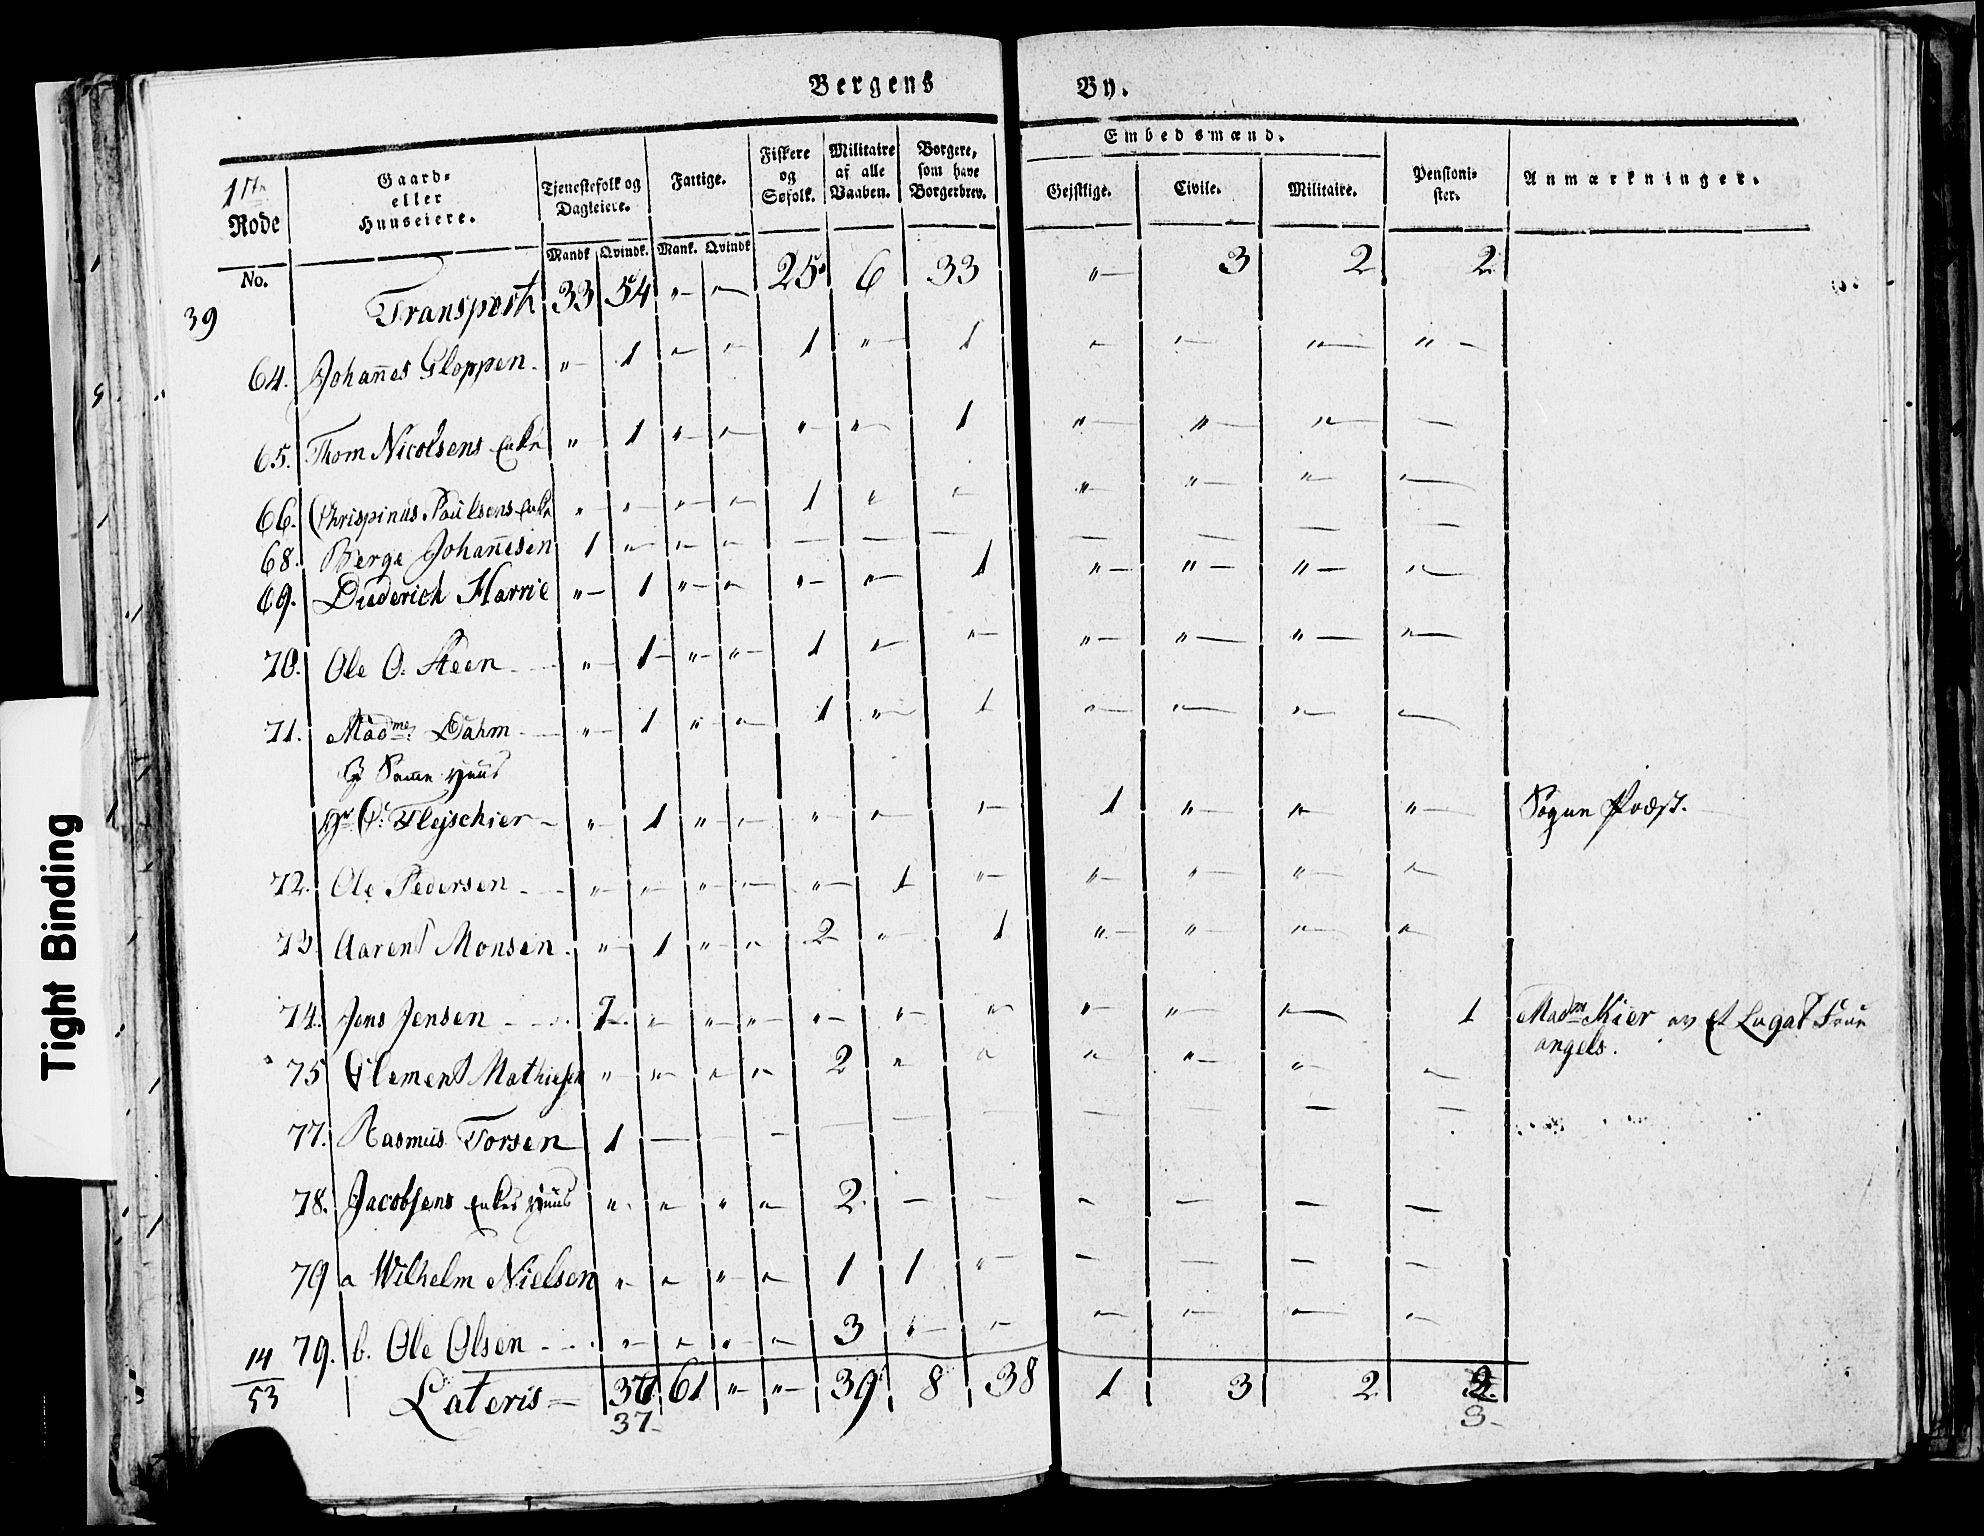 Bergens By.
17de Rode
Gaard- eller Huuseiere.
Tjenestefolk og Dagleiere.
Fattige.
Fiskere og Søfolk.
Militaire af alle Vaaben.
Borgere, som have Borgerbrev.
Embedsmænd.
Gejstlige. Civile. Militaire.
Pensionister.
Anmærkninger.
No. Mandk. Qvindk. Mank. Qvindk.
39 Transport 33 54 " " 25 6 33 " 3 2 2
64. Johannes Gloppen. " 1 " " 1 " 1 " " " "
65. Thom Nicolsens Enke " 1 " " " " 1 " " " —
66. Chrispinus Paulsens Enke " " " " 1 " " " " " "
68. Berge Johannesen 1 " " " — — — — — — —
69. Diederich Harrie " 1 " " " " 1 " " " "
70. Ole O. Steen " 1 " " 1 " " " " " "
71. Madme Dahm " 1 " " 1 " 1 " " " "
I Samme Huus
Hr C. Flejschier " 1 " " " " " 1 " " " Sogne Præst.
72. Ole Pedersen " " " " " 1 " " " " "
73 Aarent Monsen. " 1 " " 2 " 1 " " " "
74. Jens Jensen 1 " " " " " " " " " 1 Madme Kier av et Legat
angels.
75 Clement Mathiesen " " " " 2 " " " " " "
77. Rasmus Torsen 1 — — — — — — — — — —
78. Jacobsens Enkes Huus " " " " 2 — — " — — —
79 a Wilhelm Nielsen " " " " 1 1 " — — — —
79. b. Ole Olsen " " " " 3 " " " " " "
14
53
Lateris 36 61 " " 39 8 38 1 3 2
37 3
Tight Binding